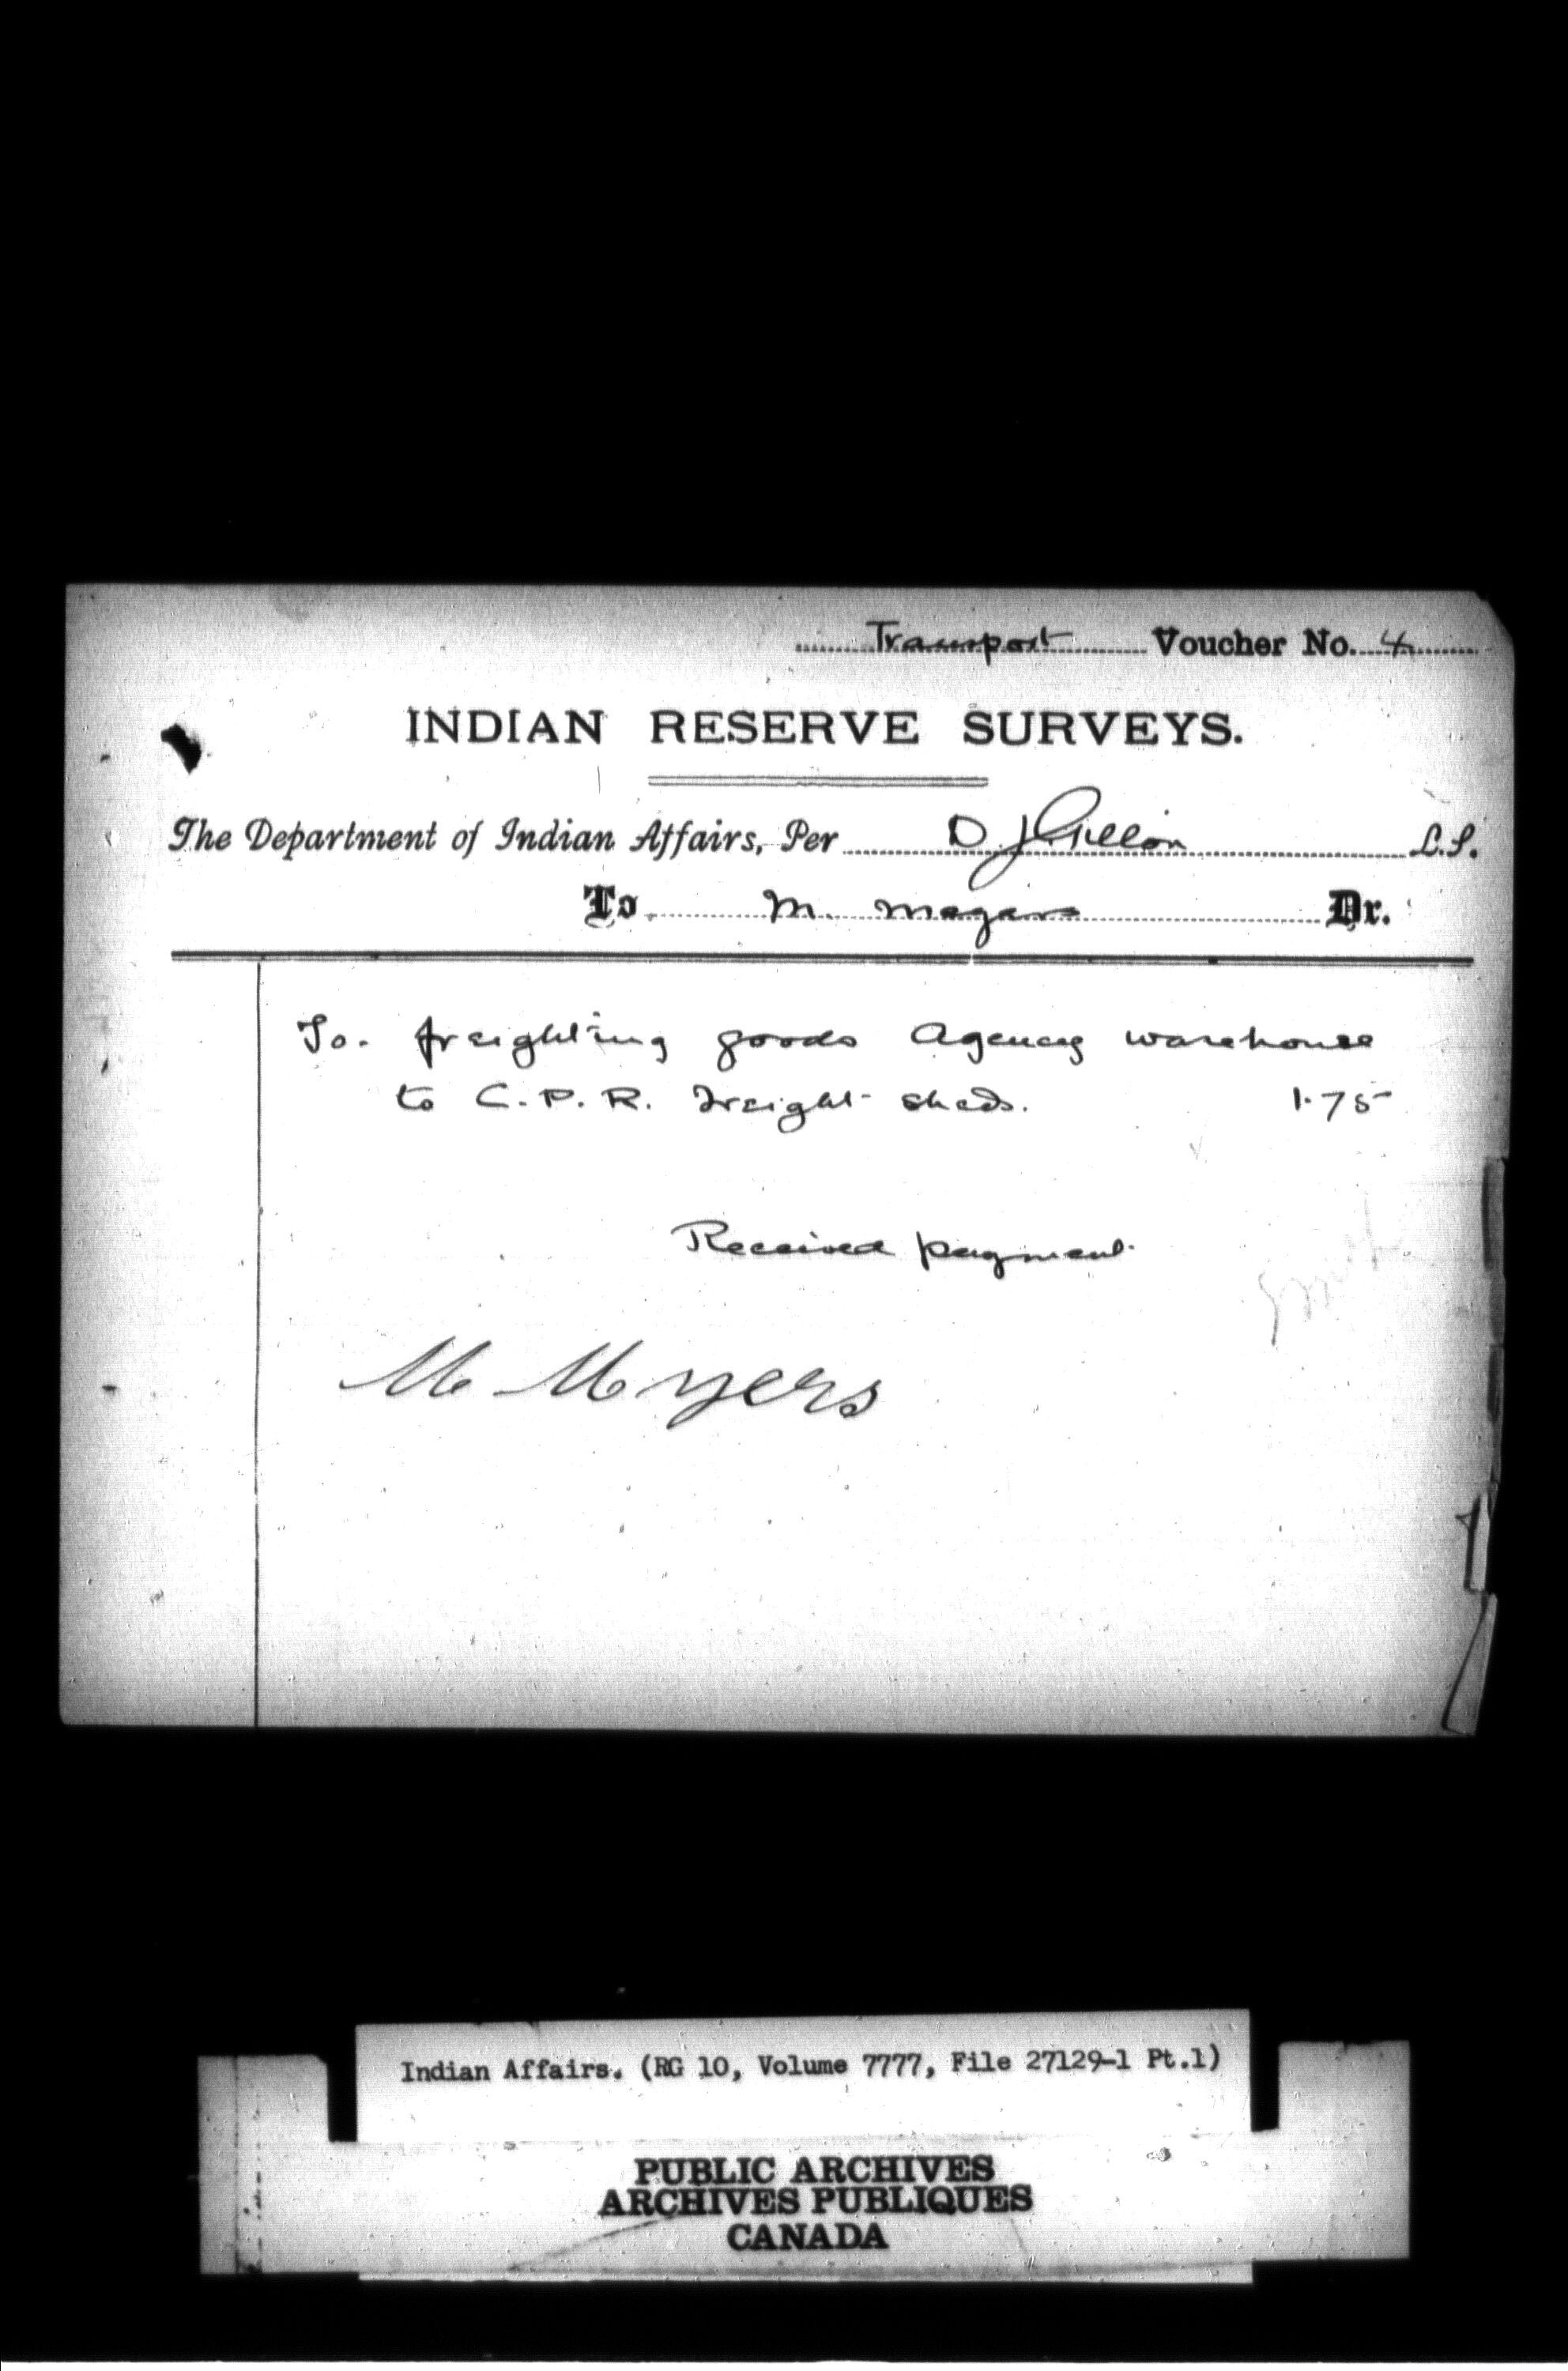 Transport Voucher No. 4
INDIAN RESERVE SURVEYS.
The Department of Indian Affairs, Per D J Gillon L.S.
To M. Magars Dr.
To. freighting goods Agency warehouse
to C.P.R. Freight sheds. 1.75
Received payment
M Myers
Indian Affairs. (RG 10, Volume 7777, File 27129-1 Pt.1)
PUBLIC ARCHIVES
ARCHIVES PUBLIQUES
CANADA